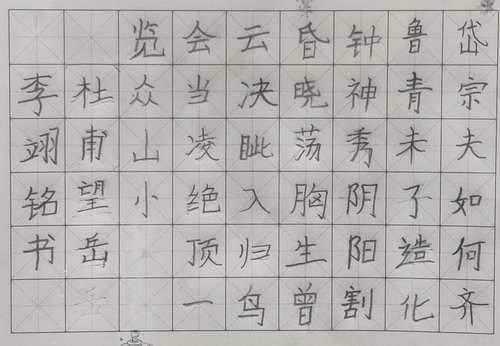 岱宗夫如何齐
鲁青未子造化
钟神秀阴阳割
昏晓荡胸生曾
云决眦入归鸟
会当凌绝顶一
览众山小
杜甫望岳
李翊铭书